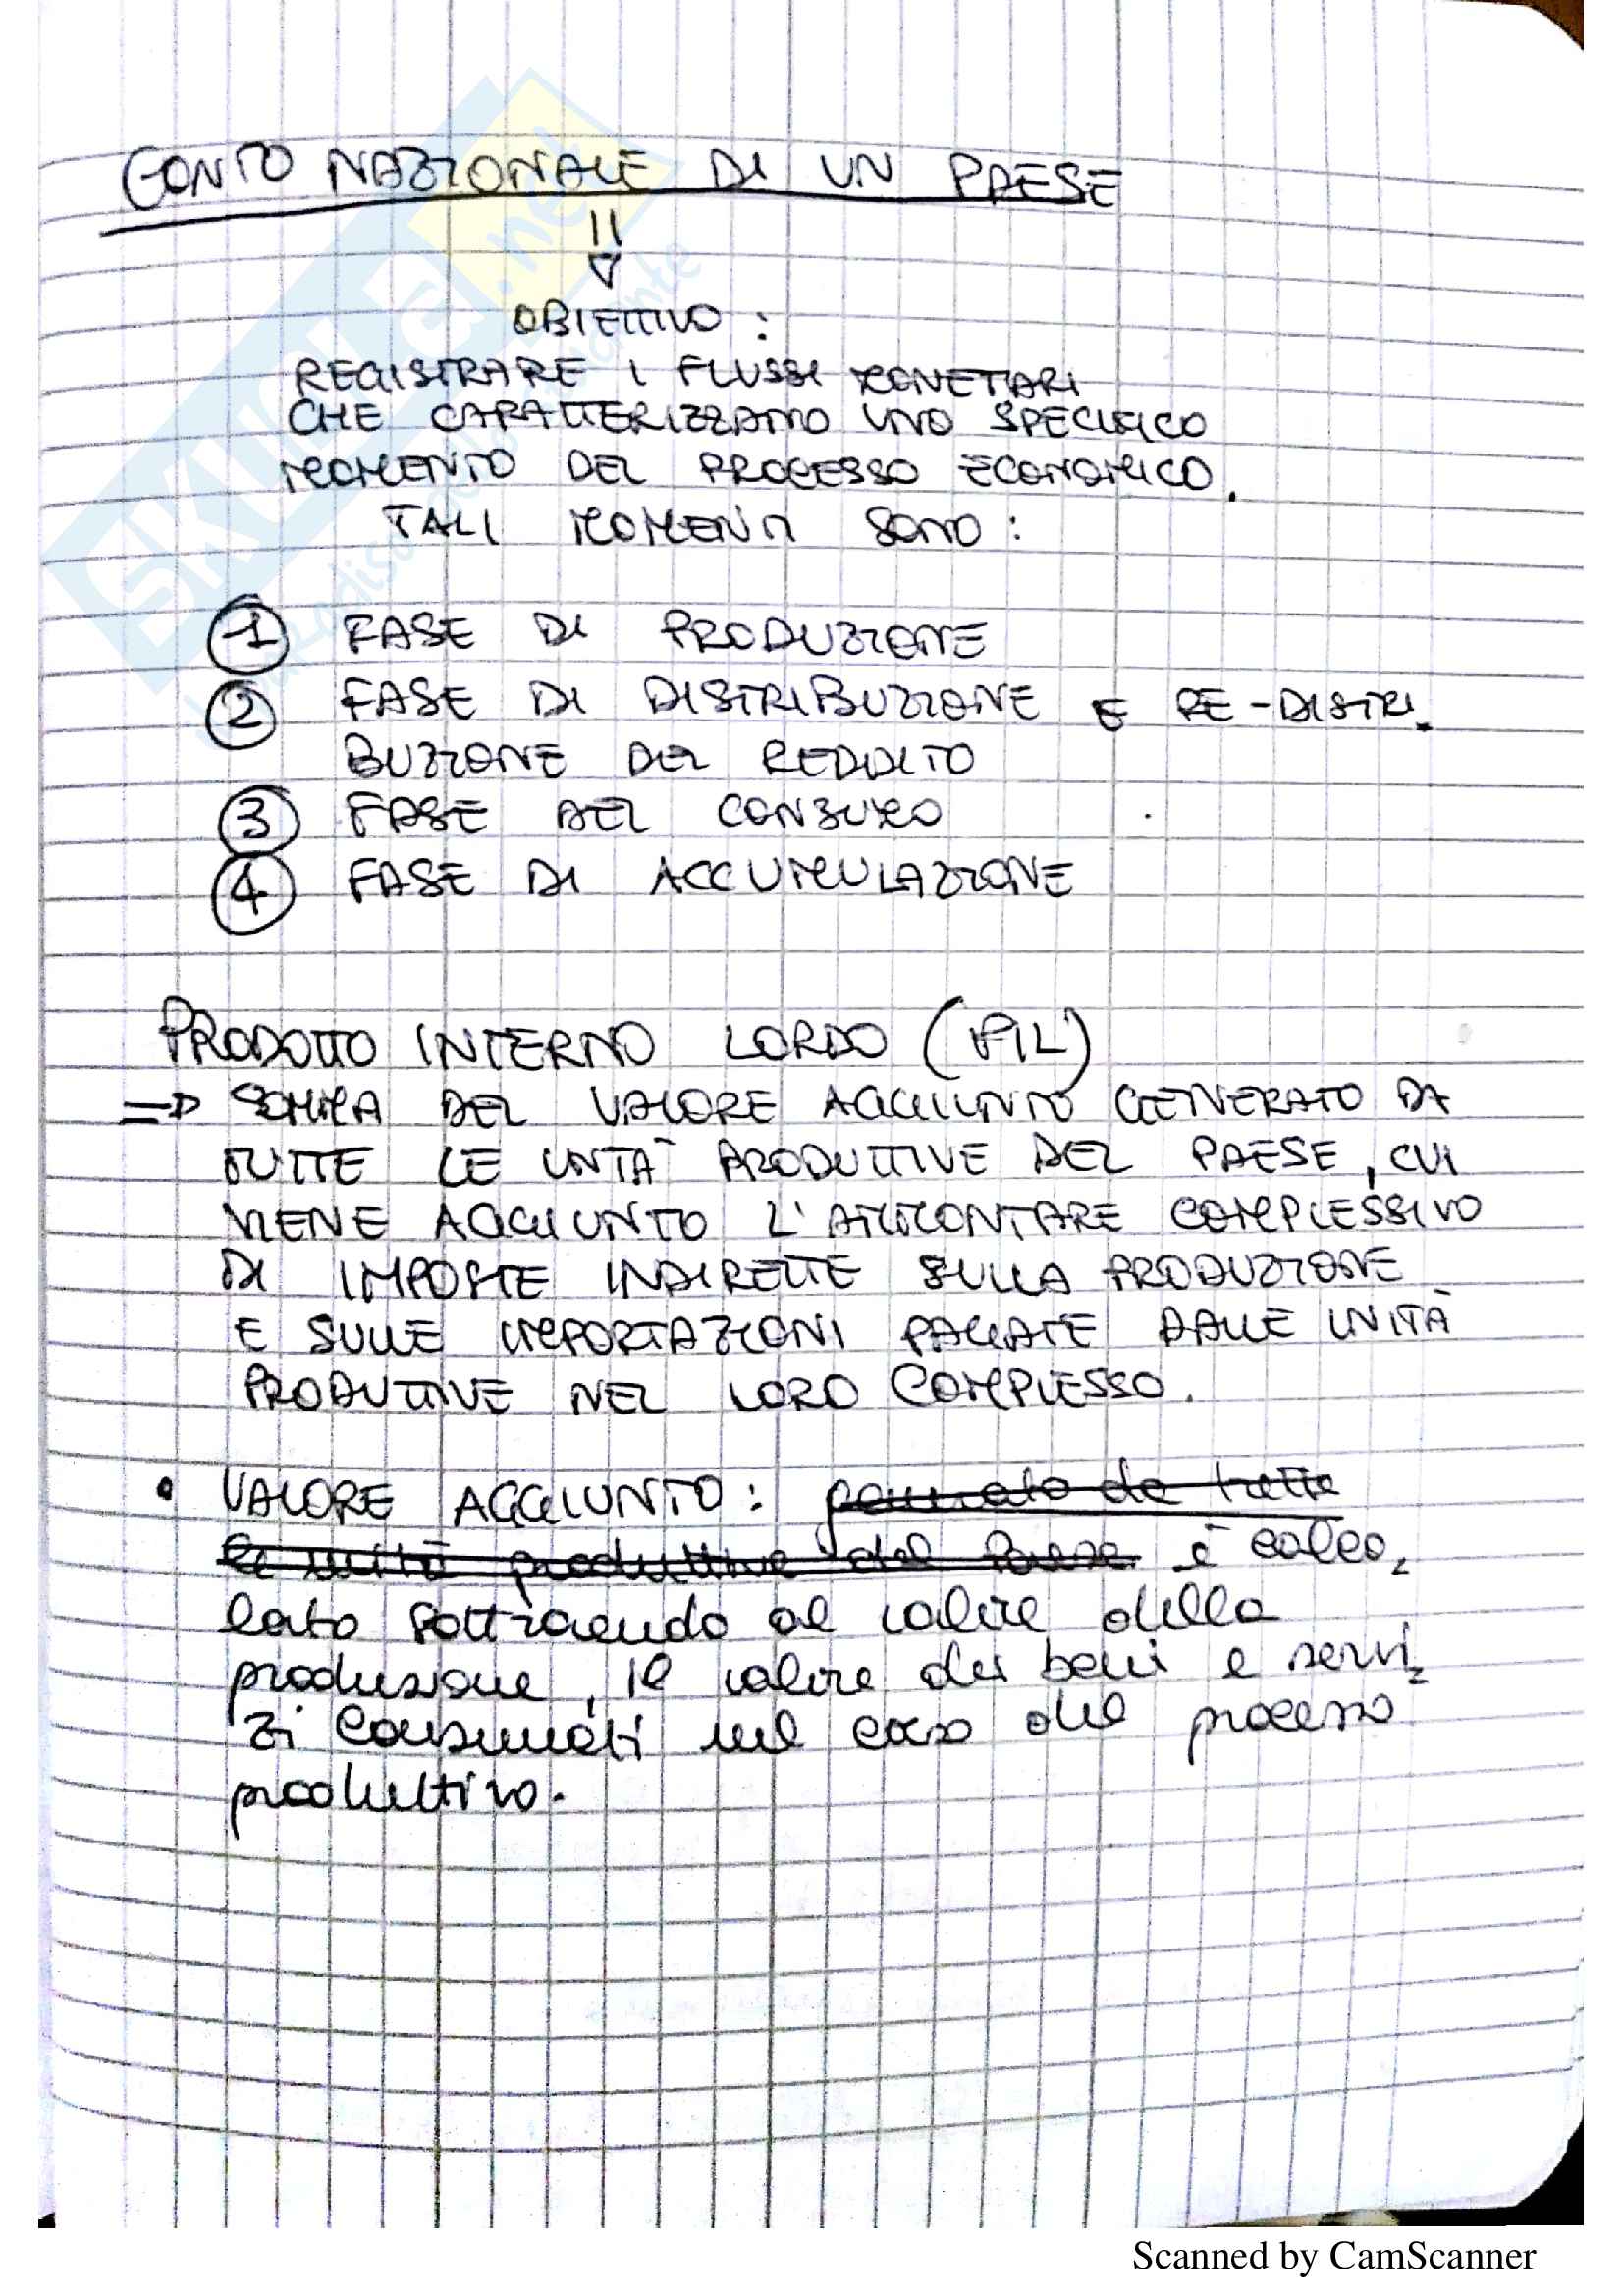 CONTO NAZIONALE DI UN PAESE
OBIETTIVO :
REGISTRARE I FLUSSI MONETARI
CHE CARATTERIZZANO UNO SPECIFICO
MOMENTO DEL PROCESSO ECONOMICO.
TALI MOMENTI SONO :
1 FASE DI PRODUZIONE
2 FASE DI DISTRIBUZIONE E RE-DISTRI-
BUZIONE DEL REDDITO
3 FASE DEL CONSUMO
4 FASE DI ACCUMULAZIONE
PRODOTTO INTERNO LORDO (PIL)
=> SOMMA DEL VALORE AGGIUNTO GENERATO DA
TUTTE LE UNTA' PRODUTTIVE DEL PAESE, CUI
VIENE AGGIUNTO L'AMMONTARE COMPLESSIVO
DI IMPOSTE INDIRETTE SULLA PRODUZIONE
E SULLE IMPORTAZIONI PAGATE DALLE UNITÀ
PRODUTTIVE NEL LORO COMPLESSO.
• VALORE AGGIUNTO : generato da tutte
le unità produttive del Paese è calco-
lato sottraendo al valore della
produzione, il valore dei beni e servi-
zi consumati nel corso del processo
produttivo.
SKUOLA.net
Scanned by CamScanner